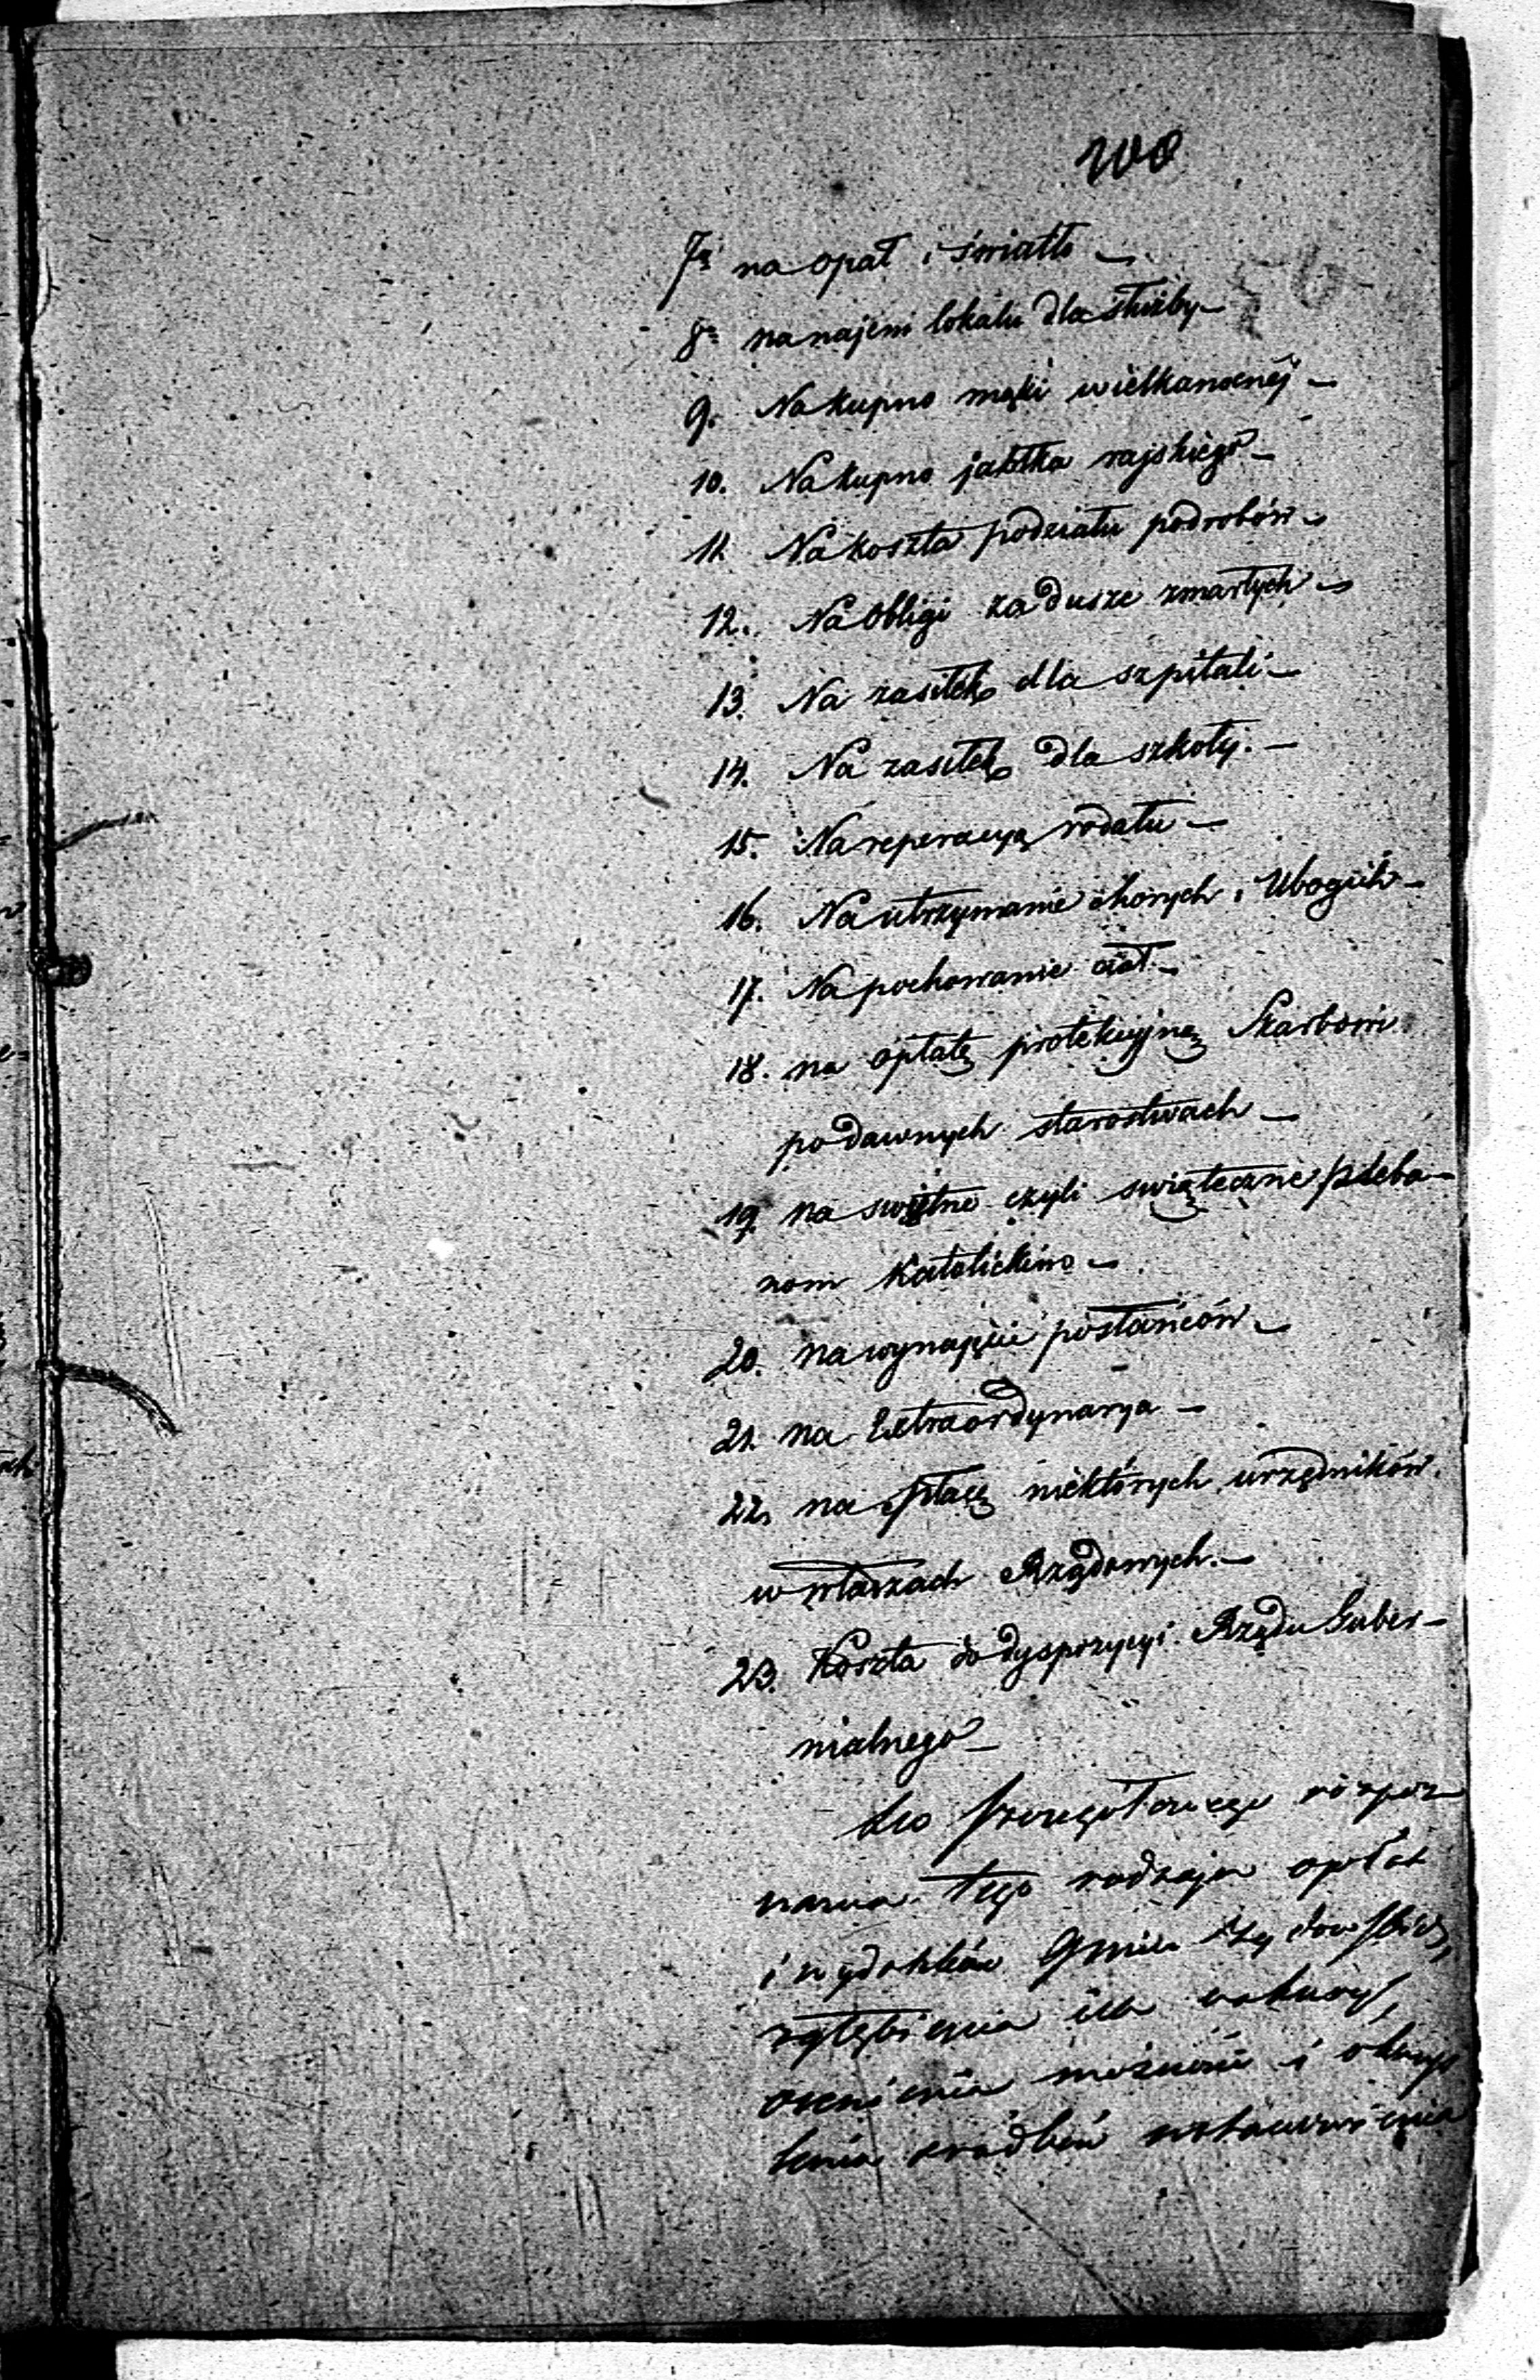 200
7ź na opał i światło —
8ź na najem lokalu dla służby —
9. Na kupno mąki wielkanocnéj —
10. Na kupno jabłka rajskiego —
11. Na koszta podziału podrobów —
12. Na Obligi za dusze zmarłych —
13. Na zasiłek dla szpitali —
14. Na zasiłek dla szkoły. —
15. Na reperacyą rodału —
16. Na utrzymanie chorych i Ubogich —
17. Na pochowanie ciał —
18. na opłatę protekcyjną Skarbowi
po dawnych starostwach —
19. na swiętne czyli swiąteczne pleba-
nom Katolickim —
20. na wynajęcie posłańców —
21. na Extraordynarya —
22. na płacę niektórych urzędników
w władzach Rządowych. —
23. Koszta do dyspozycyi Rządu Guber-
nialnego —
Do szczegółowego rozpoz-
nania tego rodzaju opłat
i wydatków Gmin Żydowskich,
zgłębienia ich natury,
ocenienia możności i okreś
lenia srodków